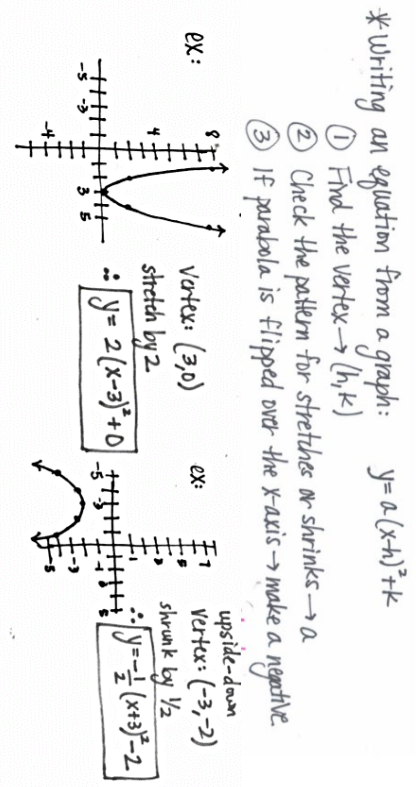 *Writing an equation from a graph: y = a(x-h)²+k
① Find the vertex → (h,k)
② Check the pattern for stretches or shrinks → a
③ If parabola is flipped over the x-axis → make a negative.
ex:
8
4
-5 -3 3 5
-4
Vertex: (3,0)
stretch by 2
∴ y = 2(x-3)²+0
ex:
7
5
1
-5 -3
-3
-5
upside-down
vertex: (-3,-2)
shrunk by 1/2
∴ y = -1/2(x+3)²-2